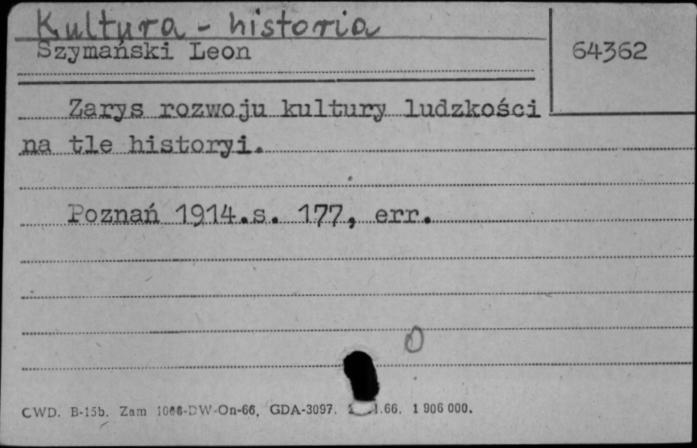 Kultura - historia
Szymański Leon
64362
Zarys rozwoju kultury ludzkości
na tle historyi.
Poznań 1914.s. 177, err.
0
CWD. B-15b. Zam -DW-On-66, GDA-3097. .66. 1 906 000.